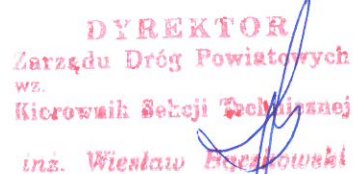 DYREKTOR
Zarządu Dróg Powiatowych
wz.
Kierownik Sekcji Technicznej
inż. Wiesław